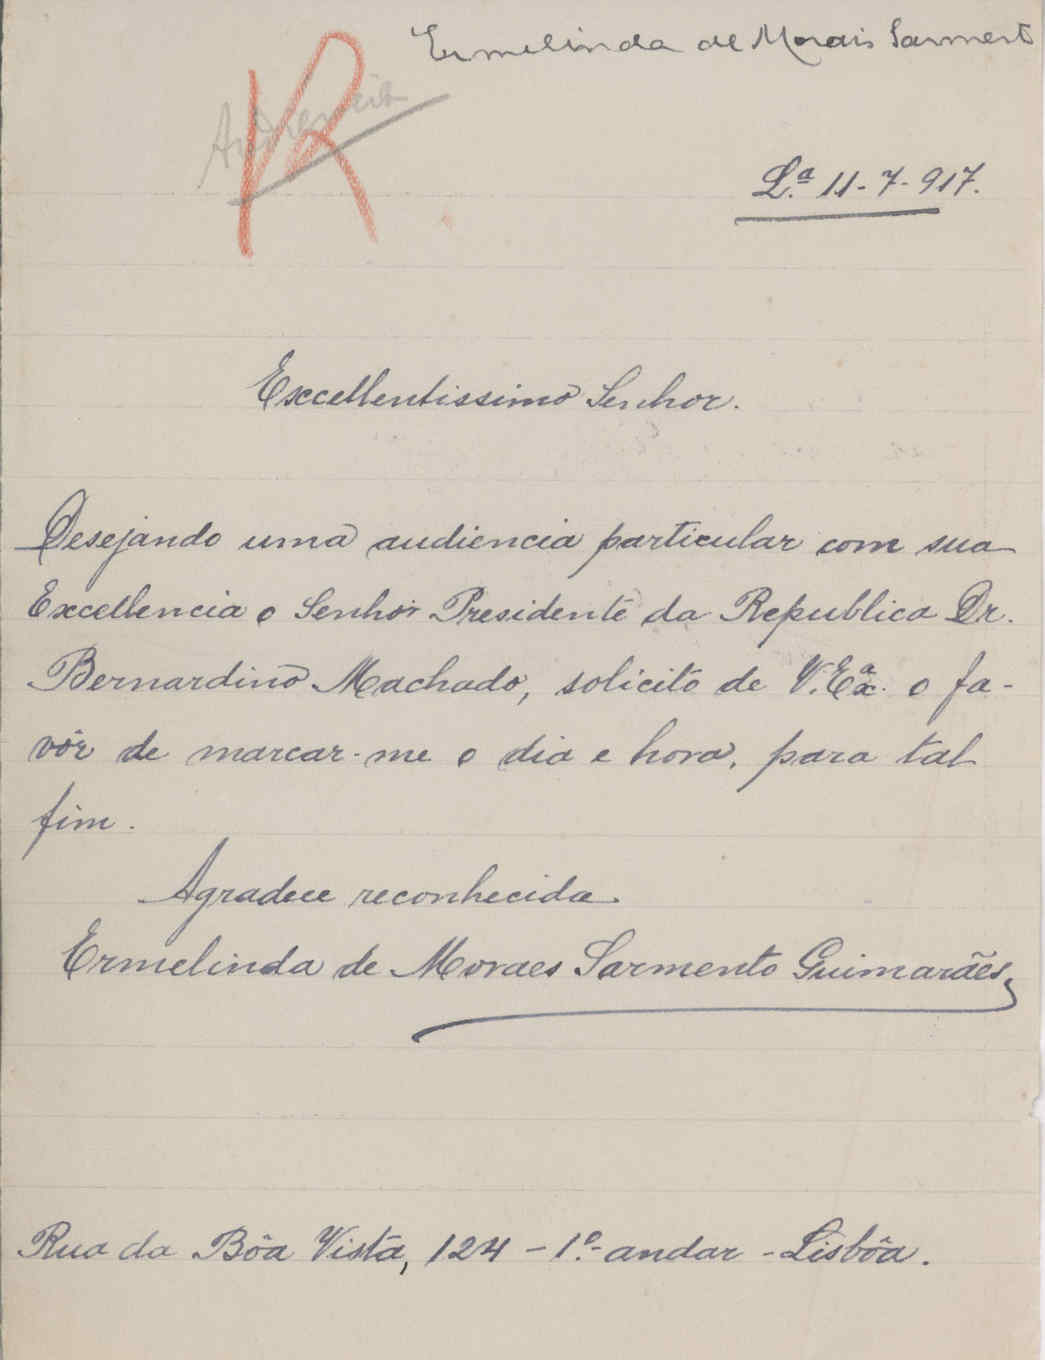 Ermelinda de Morais Sarmento
Audiencia
R
L.ª 11-7-917.
Excellentissimo Senhor.
Desejando uma audiencia particular com sua
Excellencia o Senhor Presidente da Republica Dr.
Bernardino Machado, solicito de V. Exª. o fa-
vôr de marcar-me o dia e hora, para tal
fim.
Agradece reconhecida
Ermelinda de Moraes Sarmento Guimarães
Rua da Bôa Vista, 124 - 1º. andar - Lisbôa.